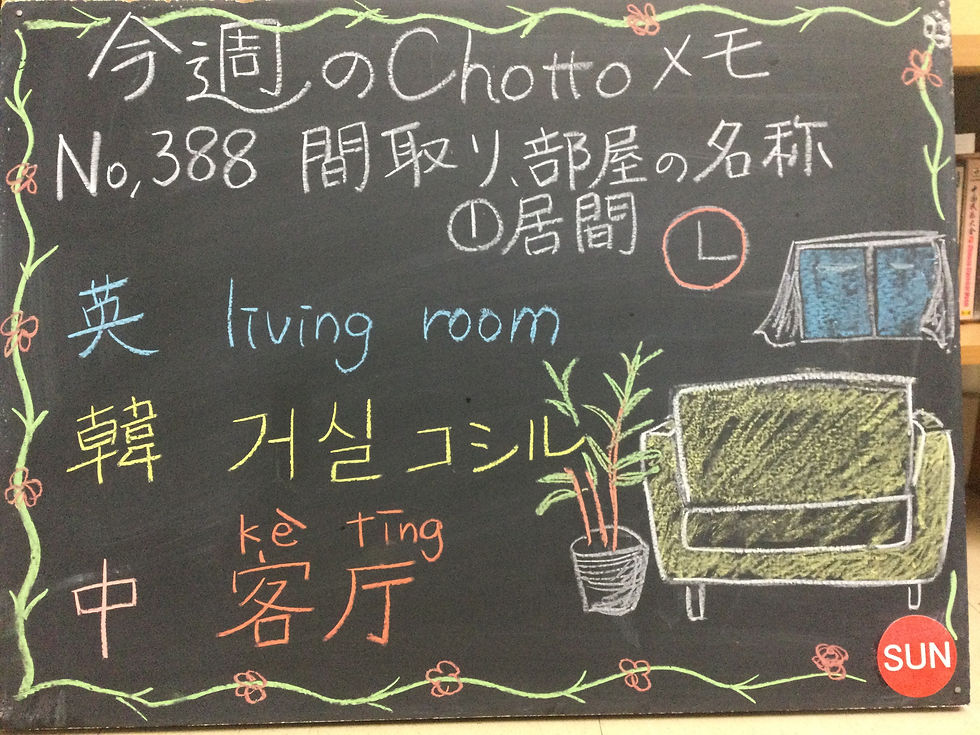 今週のChottoメモ
No.388 間取り、部屋の名称
①居間
英 living room
韓 거실 コシル
kè tīng
中 客厅
SUN